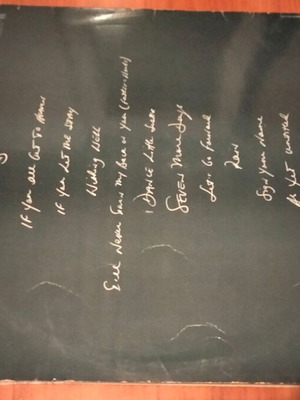 If You all Get To Heaven
If You Let Me Stay
Wishing Well
I'll Never Turn my Back on You (Father's Words)
Dance Little Sister
Seven More Days
Let's Go Forward
Rain
Sign Your Name
As Yet Untitled